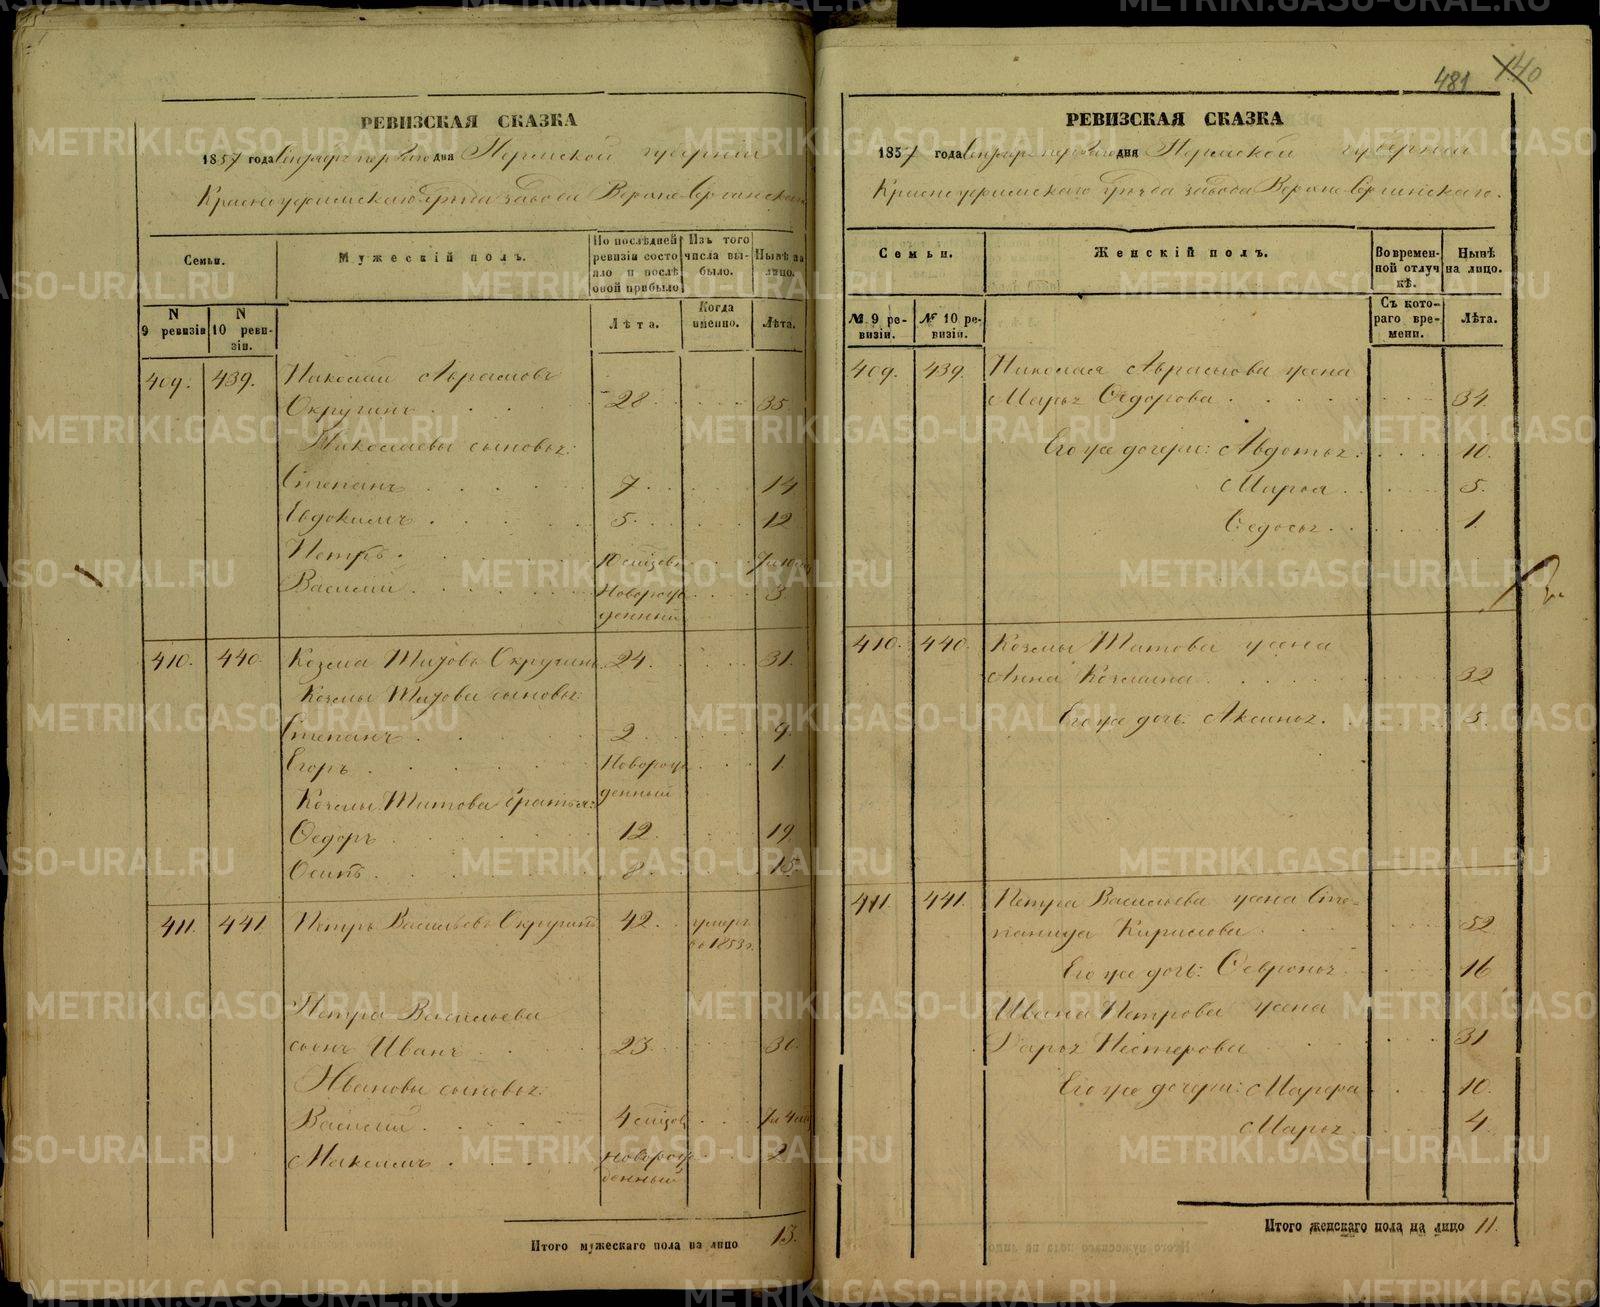 РЕВИЗСКАЯ СКАЗКА
1857 года дня Пермской губернии
Красноуфимского уезда завода Верхне-Сергинскаго
Семьи.
Мужескій полъ.
По послѣдней ревизіи состояло и послѣ оной прибыло
Изъ того числа выбыло.
Нынѣ на лицо.
N 9 ревизіи
N 10 ревизіи.
Лѣта.
Когда именно.
Лѣта.
409. 439. Николай Аврамовъ
Окручинъ 28 35
Николаевы сыновья:
Степанъ 7 14
Евдокимъ 5 12
Петръ 10 7 и 10
Василий Новорож- 3
денный
410. 440. Козма Титовъ Окручинъ 24. 31.
Козмы Титова сыновья:
Степанъ 2 9
Егоръ Новорож- 1
денный
Козмы Титова братья:
Ѳедоръ 12 19
Осипъ 8 15
411. 441. Петръ Васильевъ Окручинъ 42 умеръ
въ 1853 г.
Петра Васильева
сынъ Иванъ 23 30
Ивановы сыновья:
Василий 4 7 и 4
Максимъ новорож- 2
денный
Итого мужескаго пола на лицо 13.
481 140
РЕВИЗСКАЯ СКАЗКА
1857 года дня Пермской губернии
Красноуфимскаго уезда завода Верхне-Сергинскаго.
Семьи.
Женскій полъ.
Во временной отлучкѣ.
Нынѣ на лицо.
№ 9 ревизіи.
№ 10 ревизіи.
Съ котораго времени.
Лѣта.
409. 439. Николая Аврамова жена
Марья Ѳедорова 34
Его же дочери: Авдотья 10.
Марья 5.
Ѳедосья 1.
410. 440. Козмы Титова жена
Анна Козмина 32
Его же дочь: Аксинья 5.
411. 441. Петра Васильева жена Сте-
панида Кирилова 52
Его же дочь: Ѳевронья 16
Ивана Петрова жена
Дарья Нестерова 31
Его же дочери: Марфа 10.
Марья 4.
Итого женскаго пола на лицо 11.
METRIKI.GASO-URAL.RU